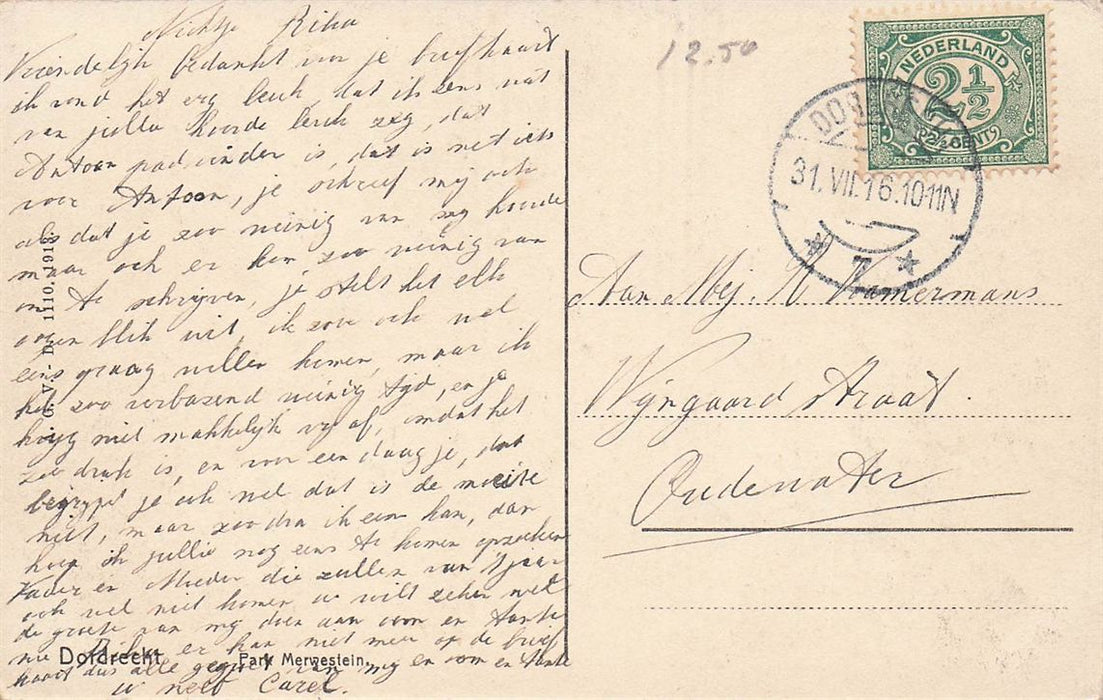 Nichtje Rika
Vriendelijk bedankt voor je briefkaart
ik vond het erg leuk, dat ik eens wat
van jullie hoorde leuk zeg, dat
Antoon padvinder is, dat is net iets
voor Antoon, je schreef mij ook
als dat je zoo weinig van mij hoorde
maar och er kan zoo weinig van
om te schrijven, je stelt het elk
oogenblik uit, ik zou ook wel
eens graag willen komen, maar ik
heb zoo verbazend weinig tijd, en je
krijg niet makkelijk vrij af, omdat het
zoo druk is, en voor een daagje, dat
begrijpt je ook wel dat is de moeite
niet, maar zoodra ik een kan, dan
hoop ik jullie nog eens te komen opzoeken
Vader en Moeder die zullen van 't jaar
ook wel niet komen u wilt zeker wel
de groete van mij doen aan oom en tante
er kan niet meer op de brief
kaart dus alle gegroet van mij en oom en tante
u neef Carel.
Dordrecht Park Merwestein.
V. D. 1110. 1913.
12.50
NEDERLAND
2½
2½ CENT
DORDRECHT
31.VII.16.10-11N
7
Aan Mej. R Kamermans
Wijngaard straat.
Oudewater